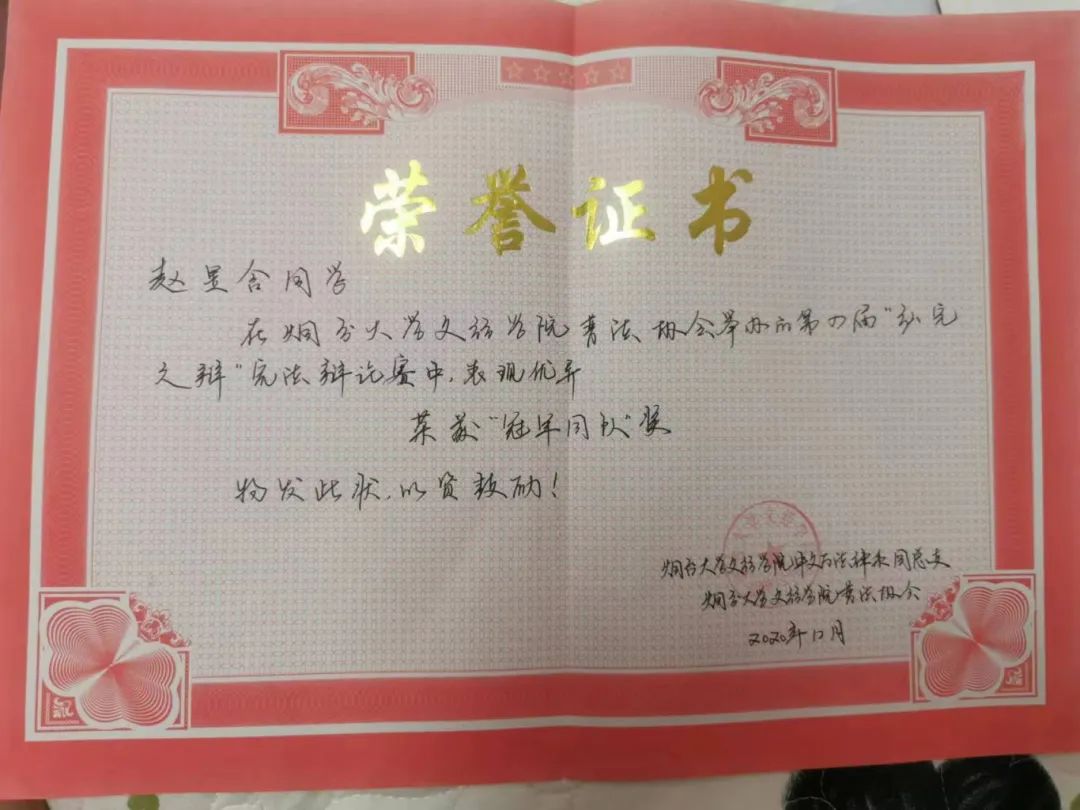 荣誉证书
赵昱含同学
在烟台大学文经学院普法协会举办的第四届“弘宪
之辩”宪法辩论赛中，表现优异
荣获“冠军团队”奖
特发此状，以资鼓励！
烟台大学文经学院 法 系团总支
烟台大学文经学院普法协会
2020年12月